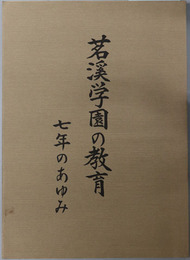 茗溪学園の教育
七年のあゆみ